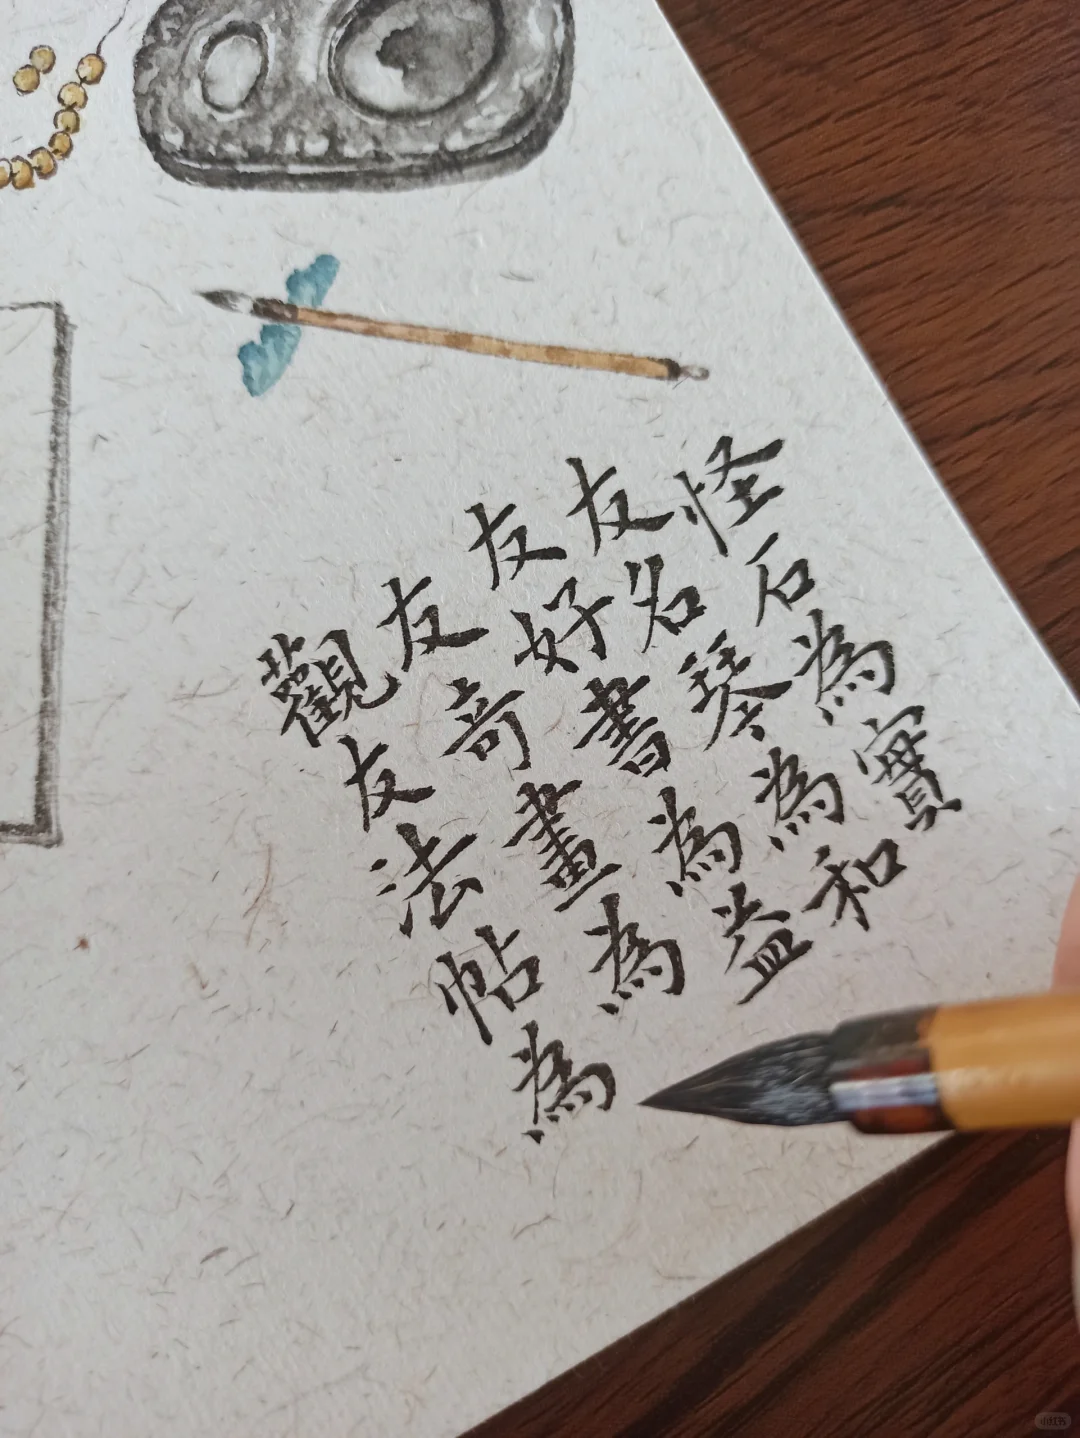 怪石為實
友名琴為和
友好書為益
友奇畫為
觀友法帖為
小红书